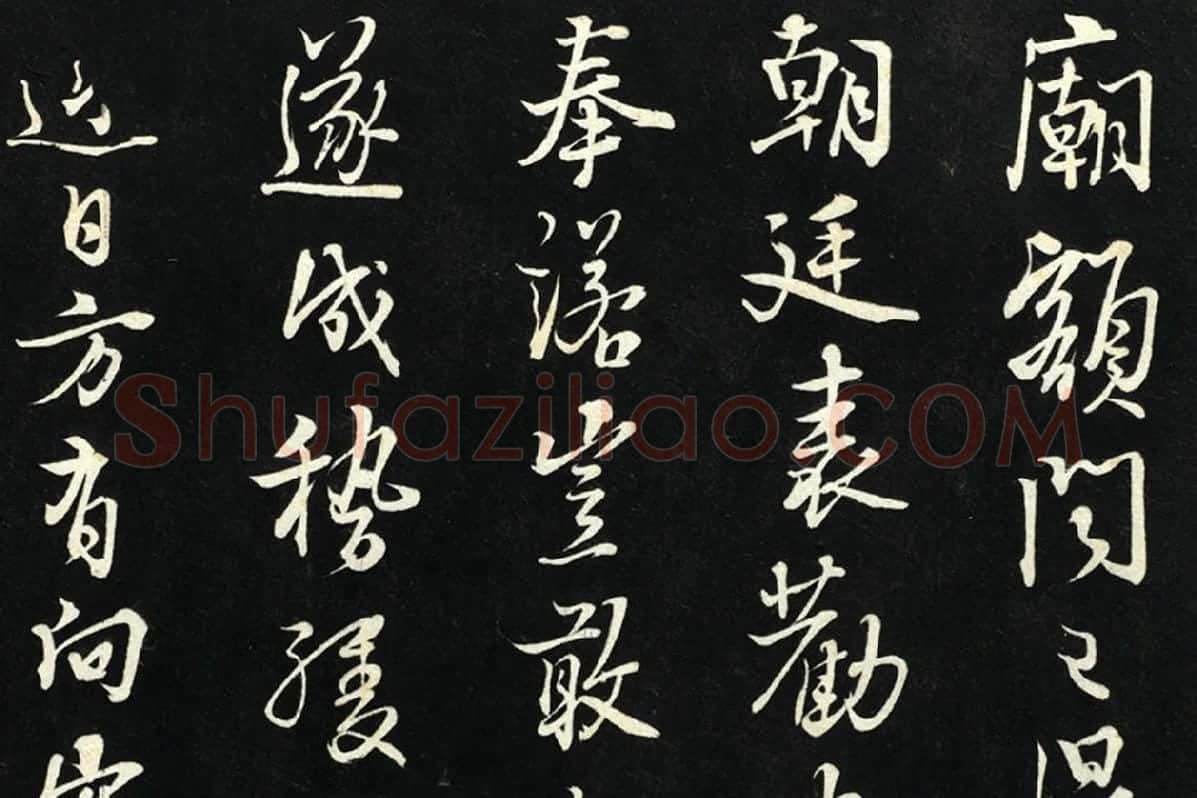 廟額聞已
朝廷表勸
奉落豈敢
遂成稽緩
近日方有向
Shufaziliao.COM